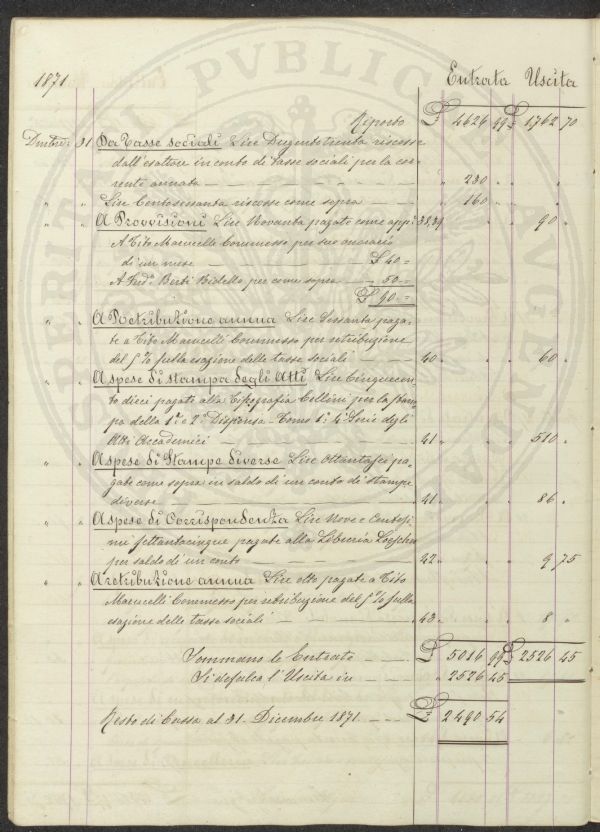 1871 Entrata Uscita
Riporto £ 4626 99 £ 1762 70
Dicembre 31 Da Tasse sociali Lire Dugentotrenta riscosse
dall'esattore in conto di tasse sociali per la cor-
rente annata — — — " 230 " " "
" " Lire Centosessanta riscosse come sopra — " 160 " " "
" " A Provvisioni Lire Novanta pagate come appº 38,39 " " 90 "
A Tito Marucelli Commesso per suo onorario
di un mese — — £ 40 =
A Fedº Berti Bidello per come sopra — 50 =
£ 90 =
" " A Retribuzione annua Lire Sessanta paga-
te a Tito Marucelli Commesso per retribuzione
del 5 % sulla esazione delle tasse sociali — 40 " " " 60 "
" " A spese di stampa degli Atti Lire Cinquecen-
to dieci pagate alla Tipografia Cellini per la stam-
pa della 1ª e 2ª Dispensa - Tomo 1º 4ª Serie degli
Atti Accademici — — — 41 " " " 510 "
" " A spese di Stampe diverse Lire Ottantasei pa-
gate come sopra in saldo di un conto di stampe
diverse — — — 41 " " " 86 "
" " A spese di Corrispondenza Lire Nove e Centesi-
mi settantacinque pagate alla Libreria Loescher
per saldo di un conto — — 42 " " " 9 75
" " A retribuzione annua Lire otto pagate a Tito
Marucelli Commesso per retribuzione del 5 % sulla
esazione delle tasse sociali — — 43 " " " 8 "
Sommano le Entrate — — £ 5016 99 £ 2526 45
Si defalca l'Uscita in — — " 2526 45
Resto di Cassa al 31. Dicembre 1871. — — £ 2490 54